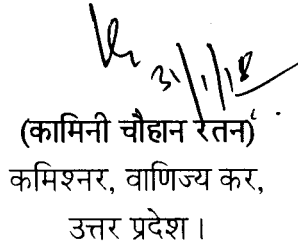 31/1/18
(कामिनी चौहान रतन)
कमिश्नर, वाणिज्य कर,
उत्तर प्रदेश।